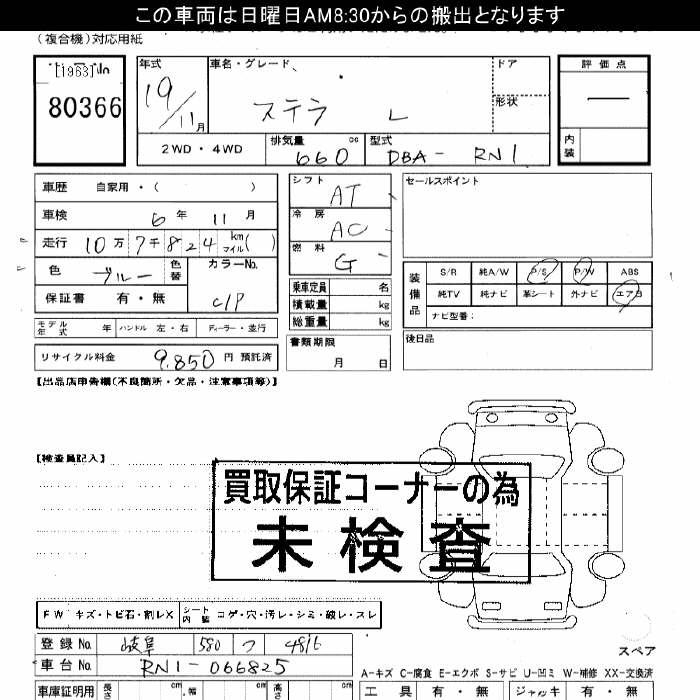 この車両は日曜日AM8:30からの搬出となります
(複合機)対応用紙
[1963]
80366
年式
19/11月
車名・グレード
ステラ L
ドア
形状
評価点
内装
2WD・4WD
排気量 cc
660
型式
DBA- RN1
車歴 自家用・( )
車検 6年 11月
走行 10万7千824 km マイル( )
色 ブルー 色替
カラーNo.
C/P
保証書 有・無
モデル年式 年 ハンドル 左・右 ディーラー・並行
リサイクル料金 9,850 円 預託済
シフト
AT
冷房
AC
燃料
G
乗車定員 名
積載量 kg
総重量 kg
書類期限
月 日
セールスポイント
装備品
S/R 純A/W P/S P/W ABS
純TV 純ナビ 革シート 外ナビ エアB
ナビ型番:
後日品
【出品店申告欄(不良箇所・欠品・注意事項等)】
【検査員記入】
買取保証コーナーの為
未検査
FW キズ・トビ石・割レX
シート内装 コゲ・穴・汚レ・シミ・破レ・スレ
登録No. 岐阜 580 つ 4816
車台No. RN1-066825
車庫証明用 長さ cm 幅 cm 高さ cm
スペア
A-キズ C-腐食 E-エクボ S-サビ U-凹ミ W-補修 XX-交換済
工具 有・無 ジャッキ 有・無